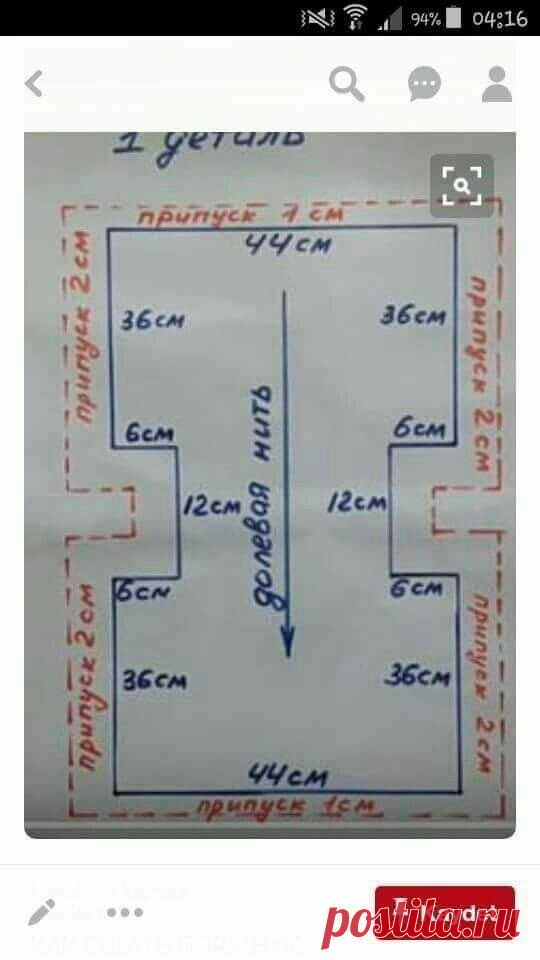 94% 04:16
1 деталь
припуск 1 см
44см
припуск 2 см
36см
36см
припуск 2 см
6см
6см
долевая нить
12см
12см
6см
6см
припуск 2 см
36см
36см
припуск 2 см
44см
припуск 1см
Kaydet
postila.ru